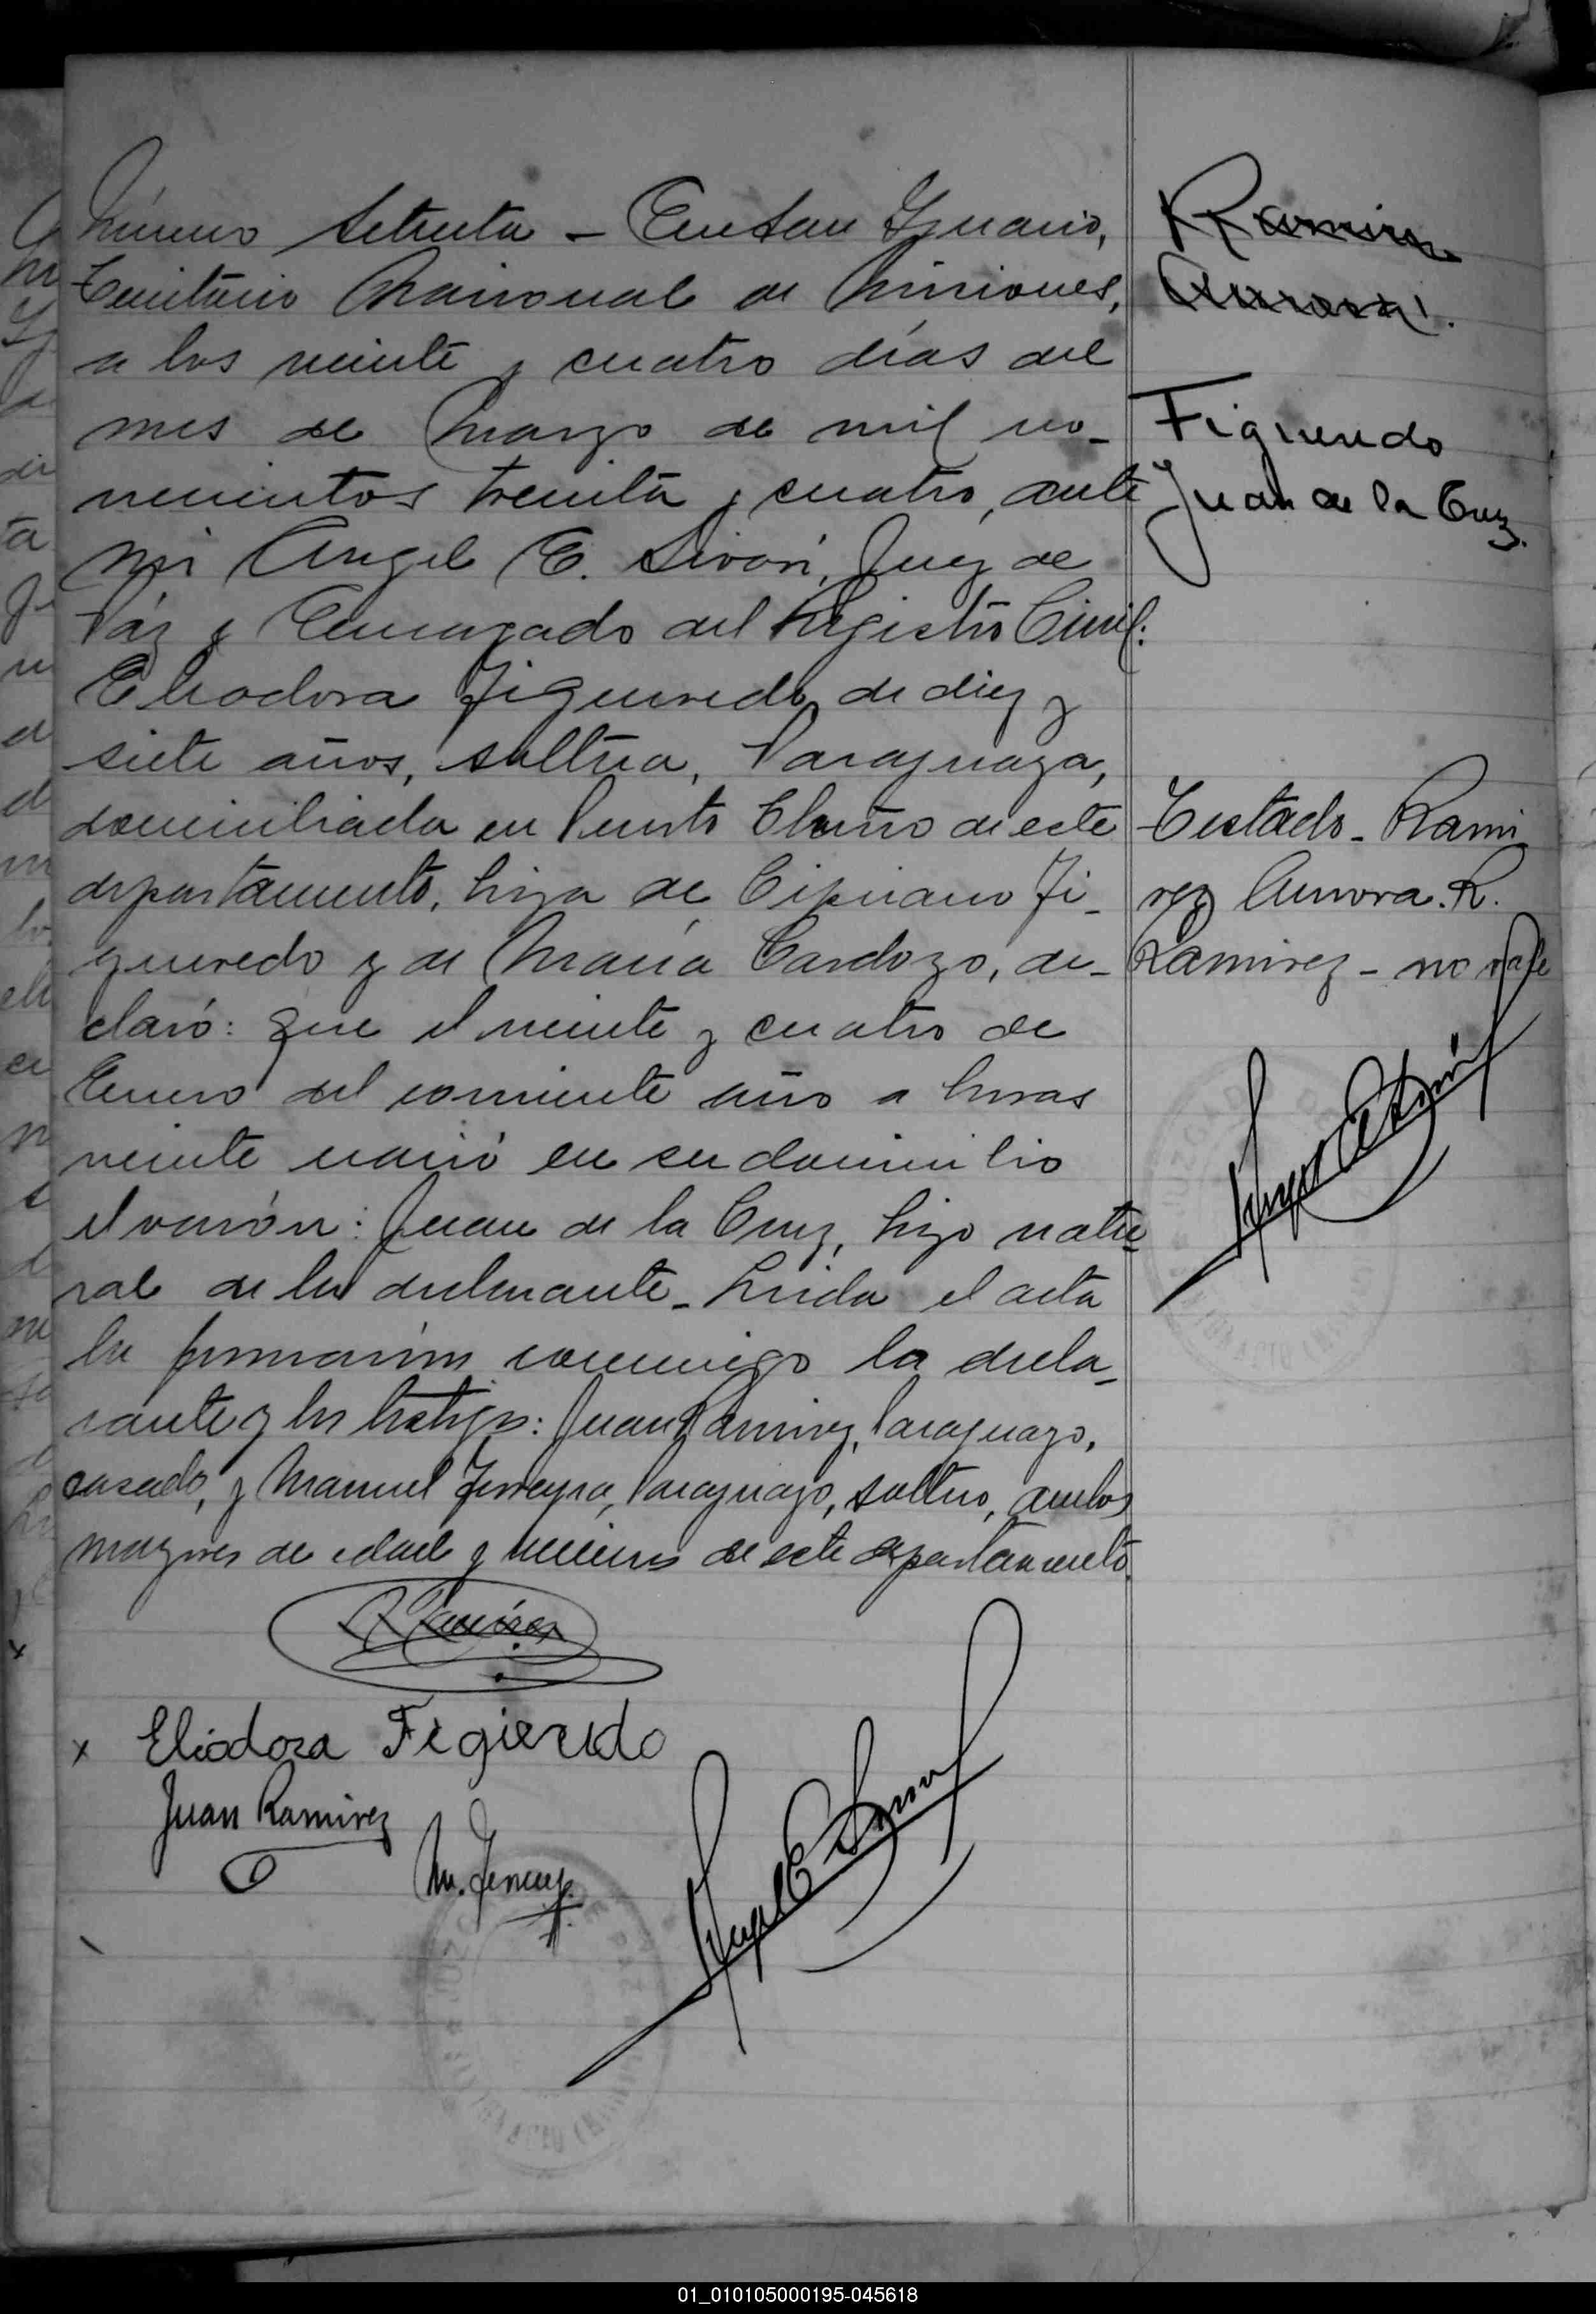 Número Setenta - En San Ignacio,
Territorio Nacional de Misiones,
a los veinte y cuatro días del
mes de Marzo de mil no-
vecientos treinta y cuatro, ante
mi Angel E. Sivori, Juez de
Páz y Encargado del Registro Civil:
Eliodora Figueredo, de diez y
siete años, soltera, Paraguaya,
domiciliada en Puerto de este
departamento, hija de Cipriano Fi-
gueredo y de María Cardozo, de-
claró: que el veinte y cuatro de
Enero del corriente año a horas
veinte nació en su domicilio
el varón: Juan de la Cruz, hijo natu-
ral de la declarante - Leida el acta
la firmaron conmigo la decla-
rante y los testigos: Juan Ramirez, Paraguayo,
casado, y Manuel Ferreyra, Paraguayo, soltero, ambos
mayores de edad y vecinos de este departamento.
R. Ramirez
x Eliodora Figieredo
Juan Ramirez
M. Ferreyra
Angel E. Sivori
Ramirez
Aurora.
Figueredo
Juan de la Cruz.
Testado - Rami
rez Aurora. R.
Ramirez - no vale
Angel E. Sivori
JUZGADO DE PAZ
SAN IGNACIO (MISIONES)
01_010105000195-045618